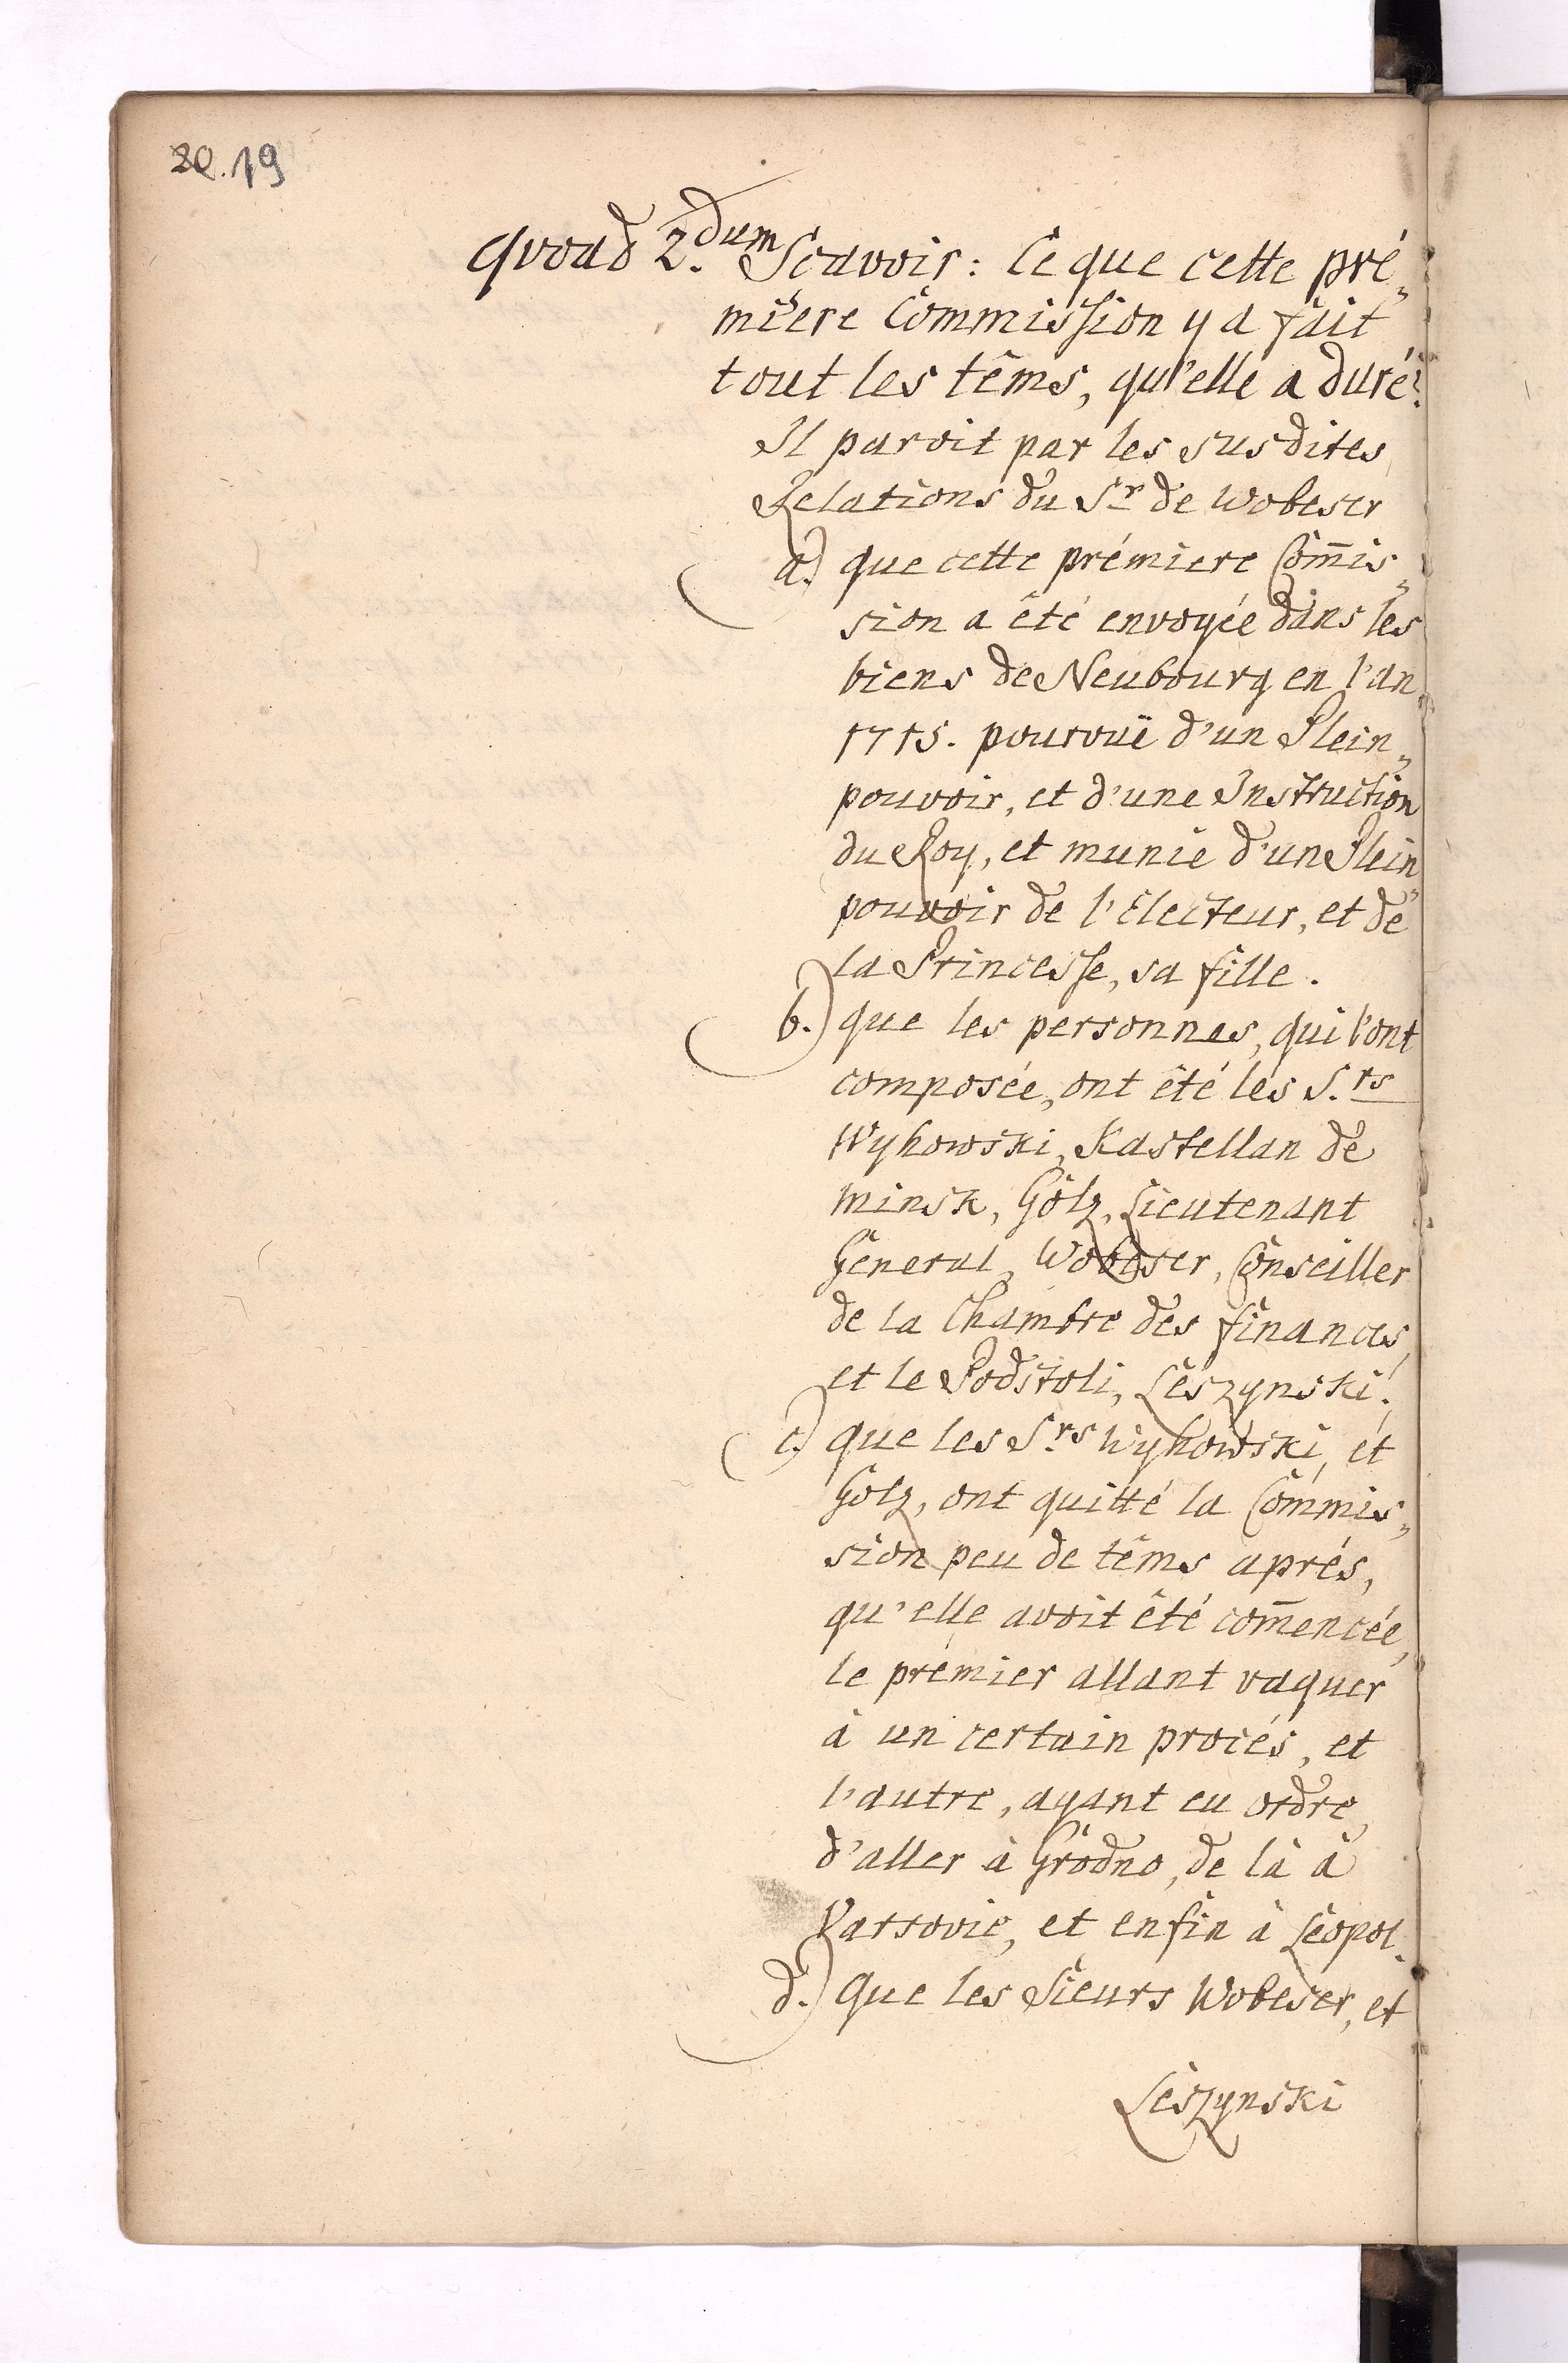 20. 19
qvoad 2.dum Scavoir: Ce que cette pré„
miere Commission y a fait
tout les têms, qu'elle a duré?
Il paroit par les susdites
Relations du Sr de Wobeser
a.) que cette prémiere Com̄is„
sion a êté envoyée dans les
biens de Neubourg en l'an
1715. pourvuë d'un Plein„
pouvoir, et d'une Instruction
du Roy, et munie d'un Plein„
pouvoir de l'Electeur, et de
la Princesse, sa fille.
b.) que les personnes, qui l'ont
composée, ont êté les S.rs
Wyhowski, Kastellan de
Minsk, Gölz, Lieutenant
General, Wobeser, Conseiller
de la Chambre des finances,
et le Podstoli, Leszynski.
c.) que les Srs Wyhowski, et
Golz, ont quitté la Commis„
sion peu de têms aprés,
qu'elle avoit êté com̄encée,
le prémier allant vaquer
à un certain procés, et
l'autre, ayant eu ordre,
d'aller à Grodno, de là à
Varsovie, et enfin à Léopol.
d.) que les Sieurs Wobeser, et
Leszynski